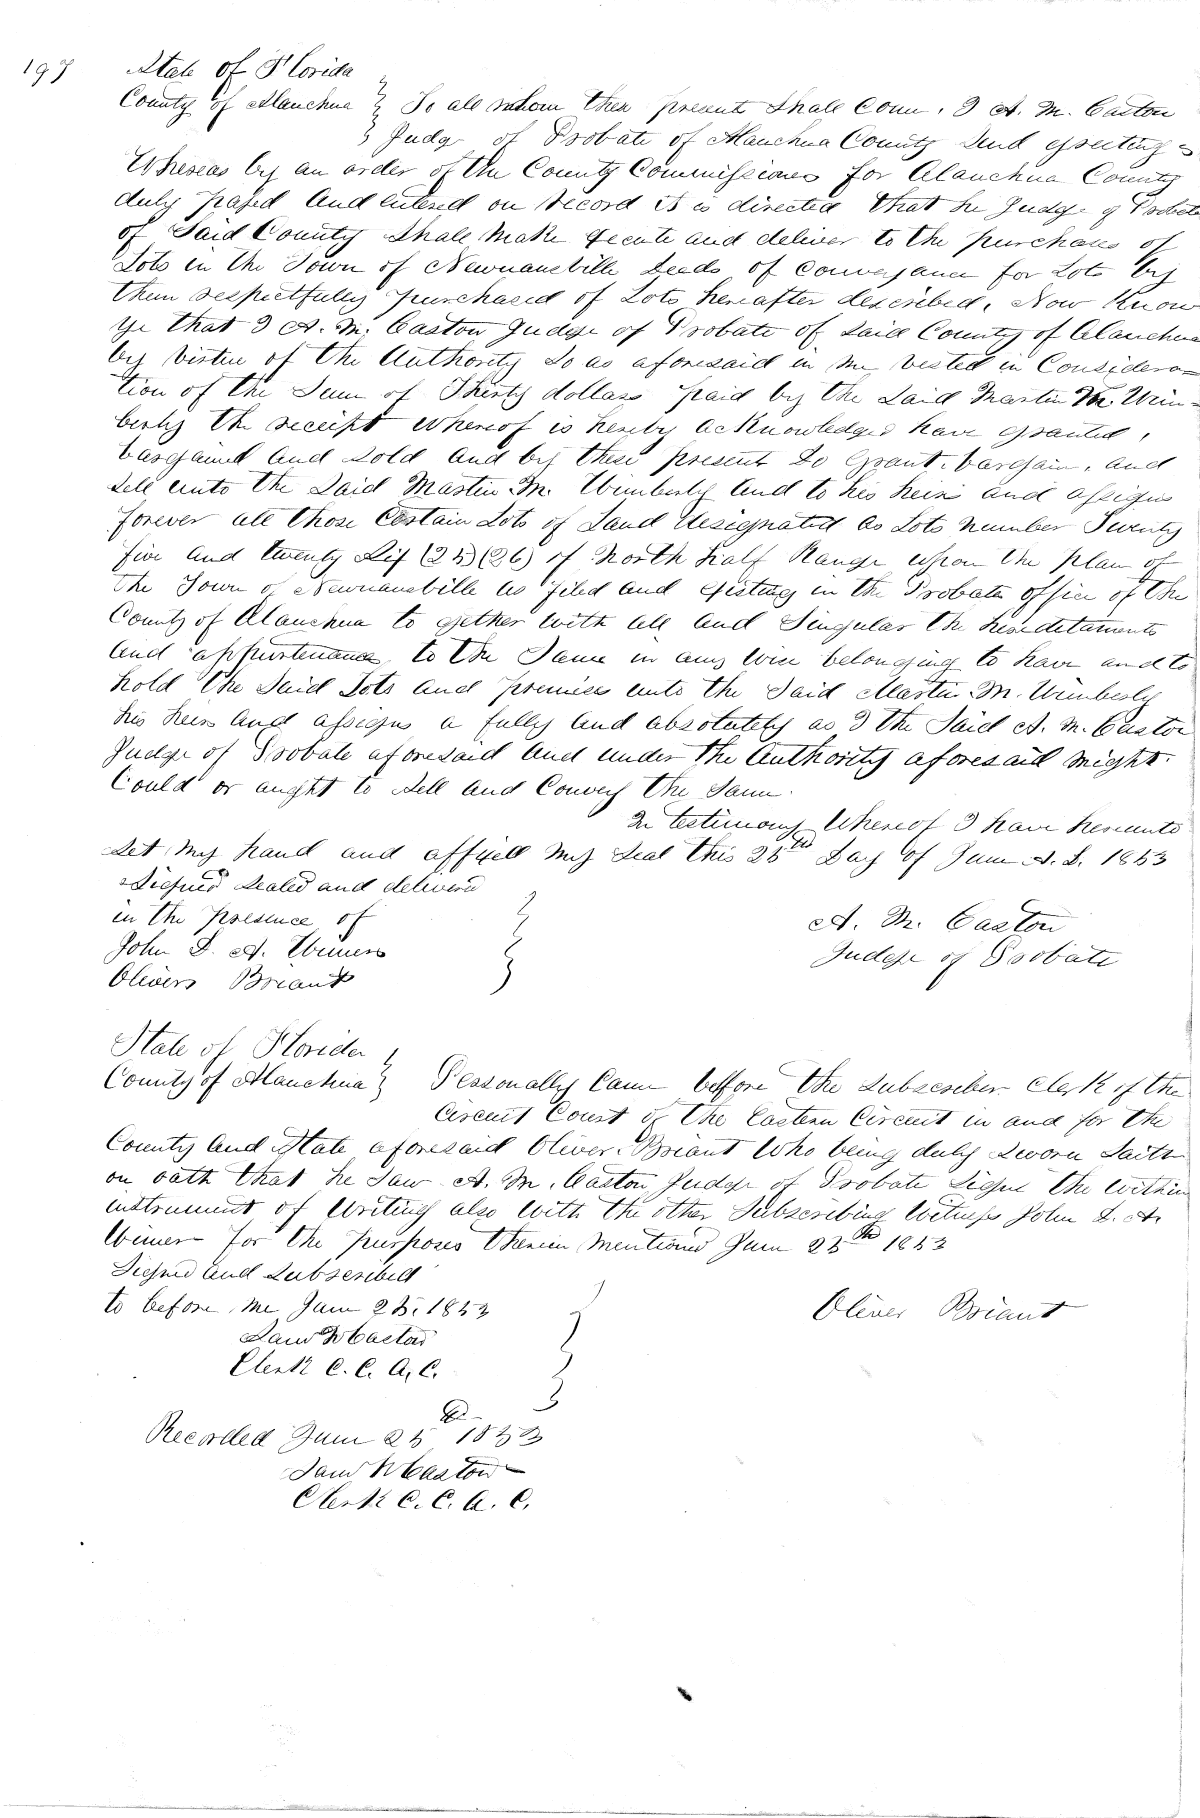 197 State of Florida
County of Alauchua } To all whom these present Shall Come. I A. M. Caston
Judge of Probate of Alauchua County Send greeting =
Whereas by an order of the County Commissiones for Alauchua County
duly passed And entered on record it is directed that he Judge of Probate
of Said County Shall Make Execute and deliver to the purchases of
Lots in the Town of Newnansville Deeds of Conveyance for Lots by
them respectfully purchased of Lots hereafter described. Now Know
ye that I A. M. Caston Judge of Probate of Said County of Alauchua
by Virtue of the Authority So as aforesaid in me Vested in Considera=
tion of the Sum of Thirty dollars paid by the Said Martin M. Wim=
berly the receipt Whereof is hereby acknowledged have granted,
bargained and Sold and by these present do grant. bargain. and
Sell unto the Said Martin M. Wimberly And to his heirs and assigns
forever all those Certain Lots of Land designated as Lots number Twenty
five and twenty Six (25) (26) of North half Range upon the plan of
the Town of Newnansville as filed and existing in the Probate office of the
County of Alauchua to gether with all and Singular the hereditaments
And appurtenances to the Same in any wise belonging to have and to
hold the Said Lots and premises unto the Said Martin M. Wimberly
his heirs and assigns a fully and absolutely as I the Said A. M. Caston
Judge of Probate aforesaid and under the Authority aforesaid might.
Could or aught to Sell and Convey the Same.
In testimony Whereof I have hereunto
Set My hand and affixed my Seal this 25th Day of June A. D. 1853
Signed Sealed and delivered
in the presence of
John D. A. Wimers
Olivers Briant
A. M. Caston
Judge of Probate
State of Florida
County of Alauchua } Personally Came before the Subscriber Clerk of the
Circuit Court of the Eastern Circuit in and for the
County And State aforesaid Oliver Briant Who being duly Sworn Saith
on oath that he Saw A. M. Caston Judge of Probate Signe the within
instrument of Writing also with the other Subscribing Witness John D. A.
Wimer for the purposes therein Mentioned June 25th 1853
Signed and Subscribed
to before me June 25. 1853
Oliver Briant
Saml W Caston
Clerk C. C. A. C.
Recorded June 25th 1853
Saml W Caston
Clerk C. C. A. C.